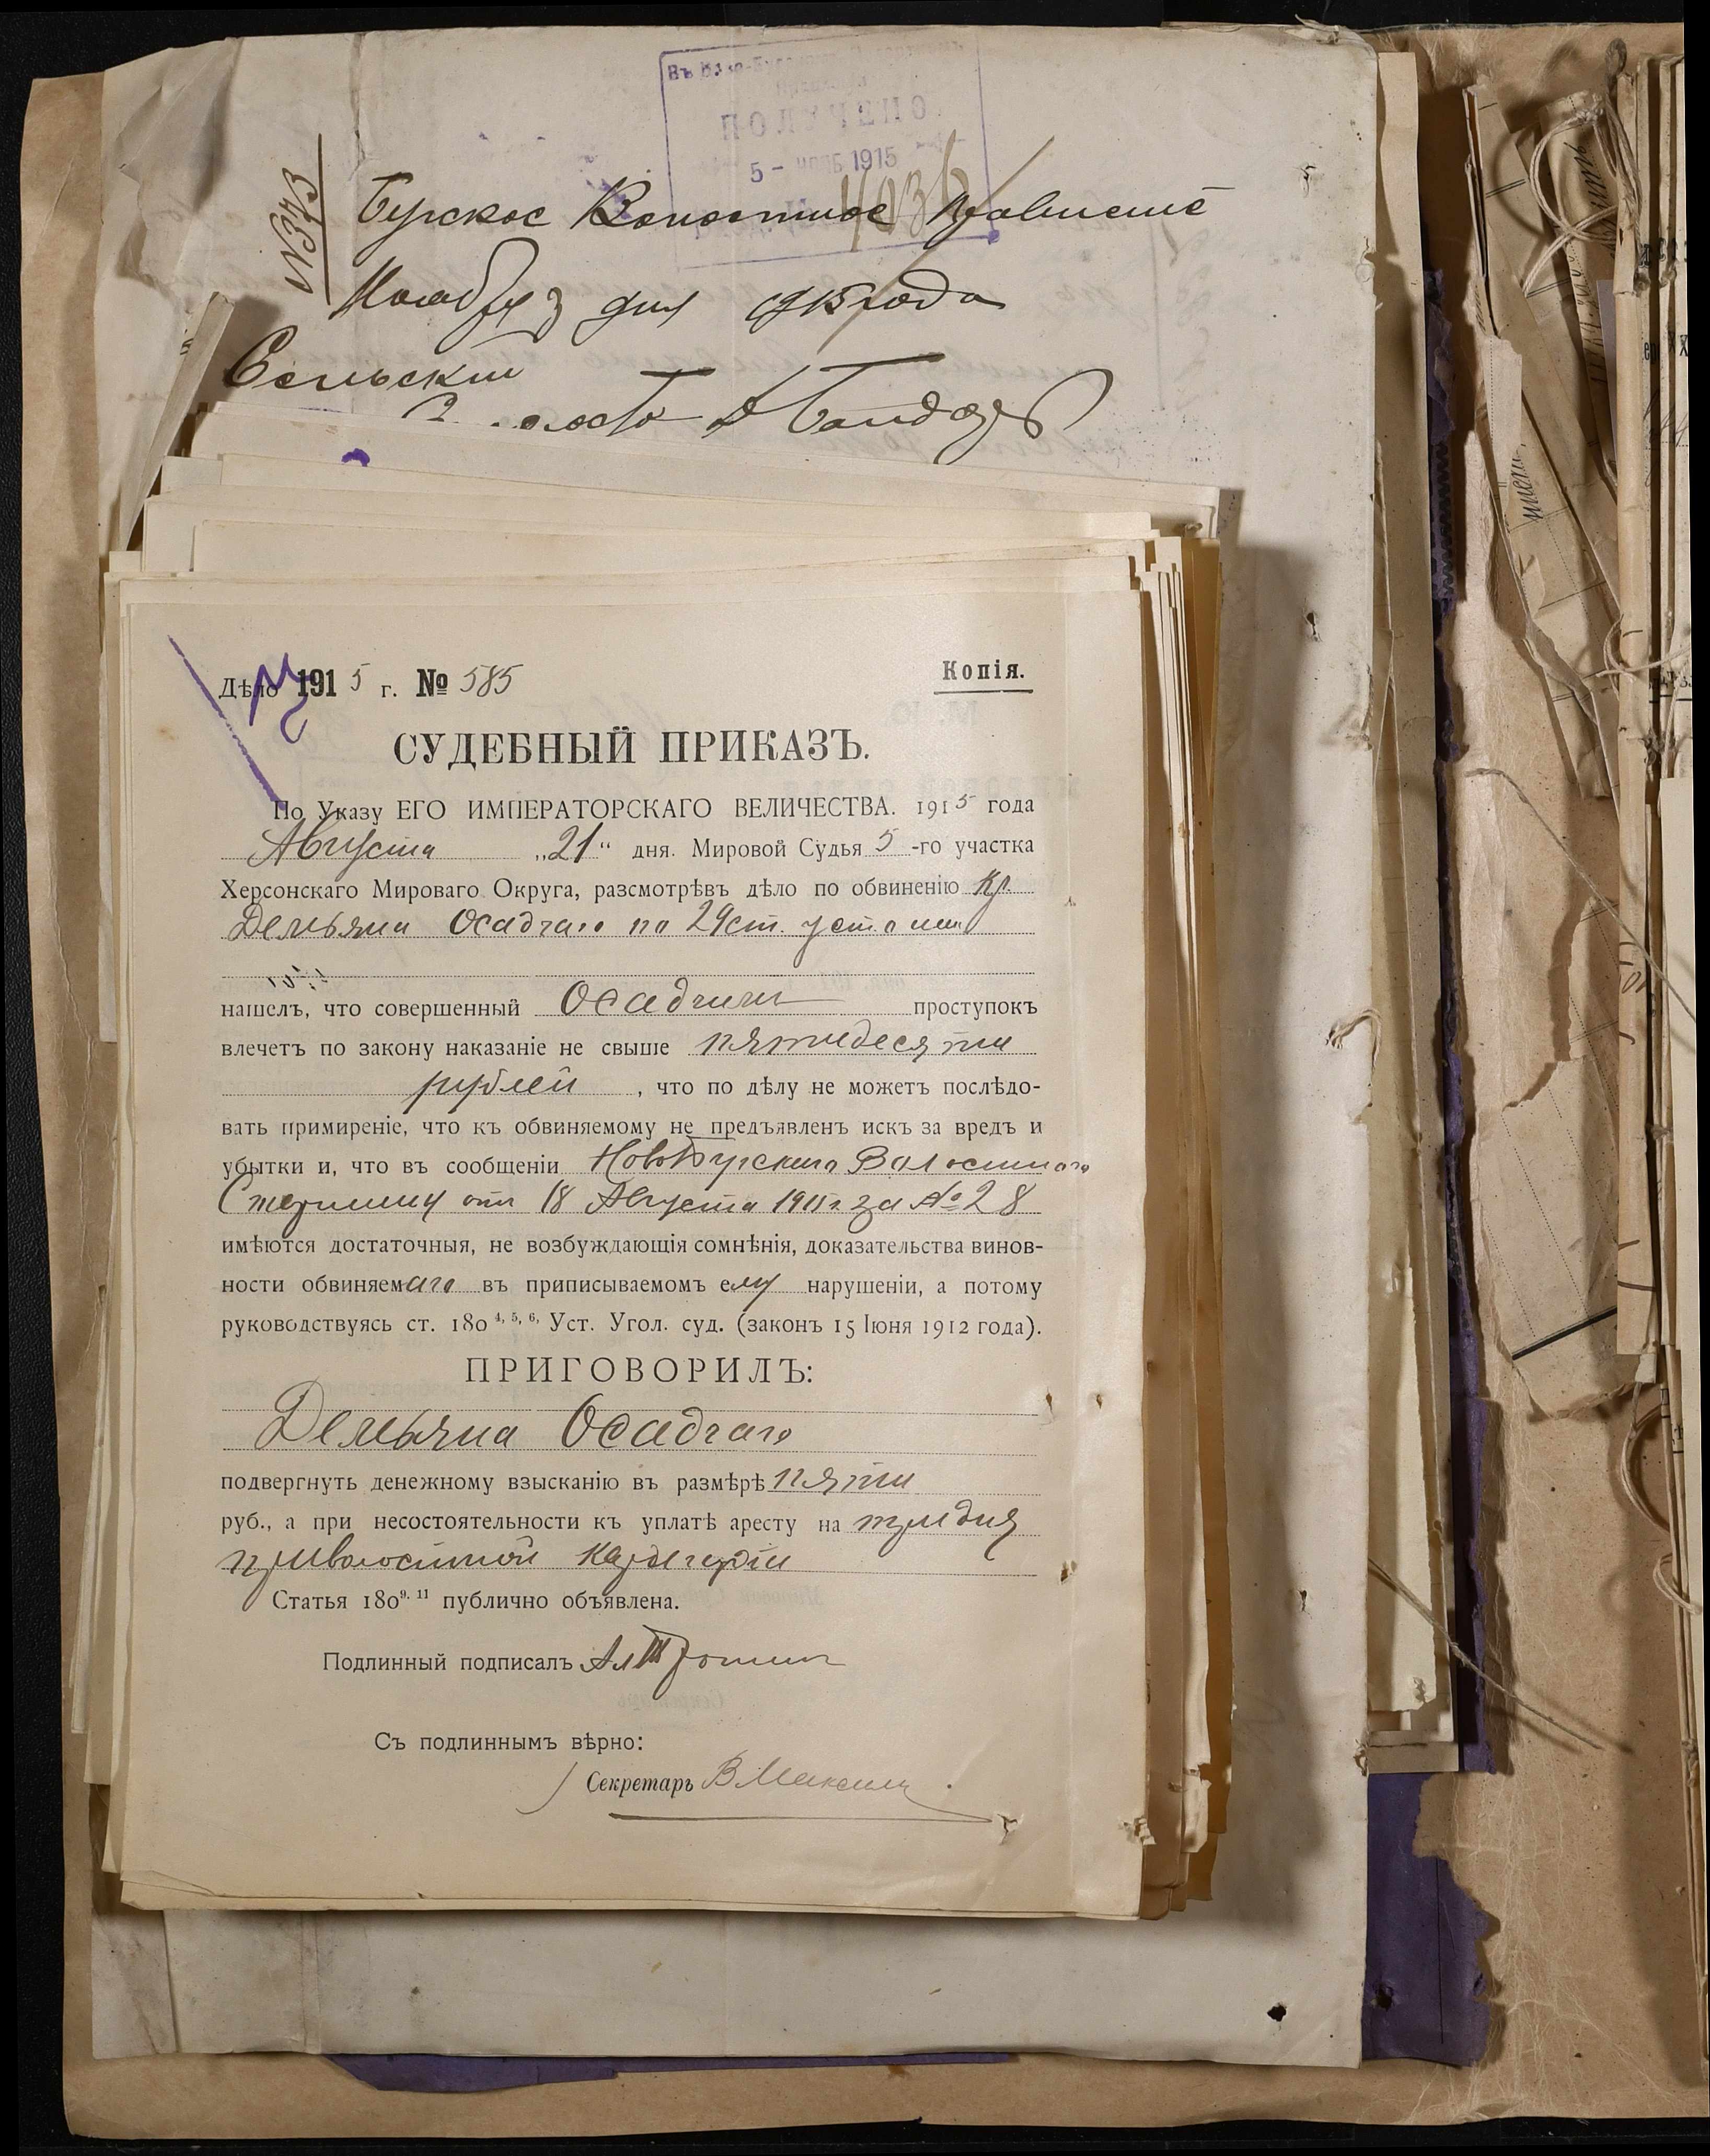 ПОЛУЧЕНО
5 - НОЯБ 1915
4036
№373
Бугское Волостное Правление
Ноября 3 дня 1915 года
Сельский
Дѣло 1915 г. № 585
Копія.
СУДЕБНЫЙ ПРИКАЗЪ.
По Указу ЕГО ИМПЕРАТОРСКАГО ВЕЛИЧЕСТВА. 1915 года
Августа „21“ дня. Мировой Судья 5-го участка
Херсонскаго Мироваго Округа, разсмотрѣвъ дѣло по обвиненію кр.
Демьяна Осадчаго по 29 ст. уст о нак
нашелъ, что совершенный Осадчимъ проступокъ
влечетъ по закону наказаніе не свыше пятидесяти
рублей, что по дѣлу не можетъ послѣдо-
вать примиреніе, что къ обвиняемому не предъявленъ искъ за вредъ и
убытки и, что въ сообщеніи НовоБугскаго Волостного
Старшины отъ 18 Августа 1915 г. за № 28
имѣются достаточныя, не возбуждающія сомнѣнія, доказательства винов-
ности обвиняемаго въ приписываемомъ ему нарушеніи, а потому
руководствуясь ст. 180 4, 5, 6, Уст. Угол. суд. (законъ 15 Іюня 1912 года).
ПРИГОВОРИЛЪ:
Демьяна Осадчаго
подвергнуть денежному взысканію въ размѣрѣ пяти
руб., а при несостоятельности къ уплатѣ аресту на три дня
при волостной кардегардіи
Статья 180 9. 11 публично объявлена.
Подлинный подписалъ
Съ подлиннымъ вѣрно:
Секретарь